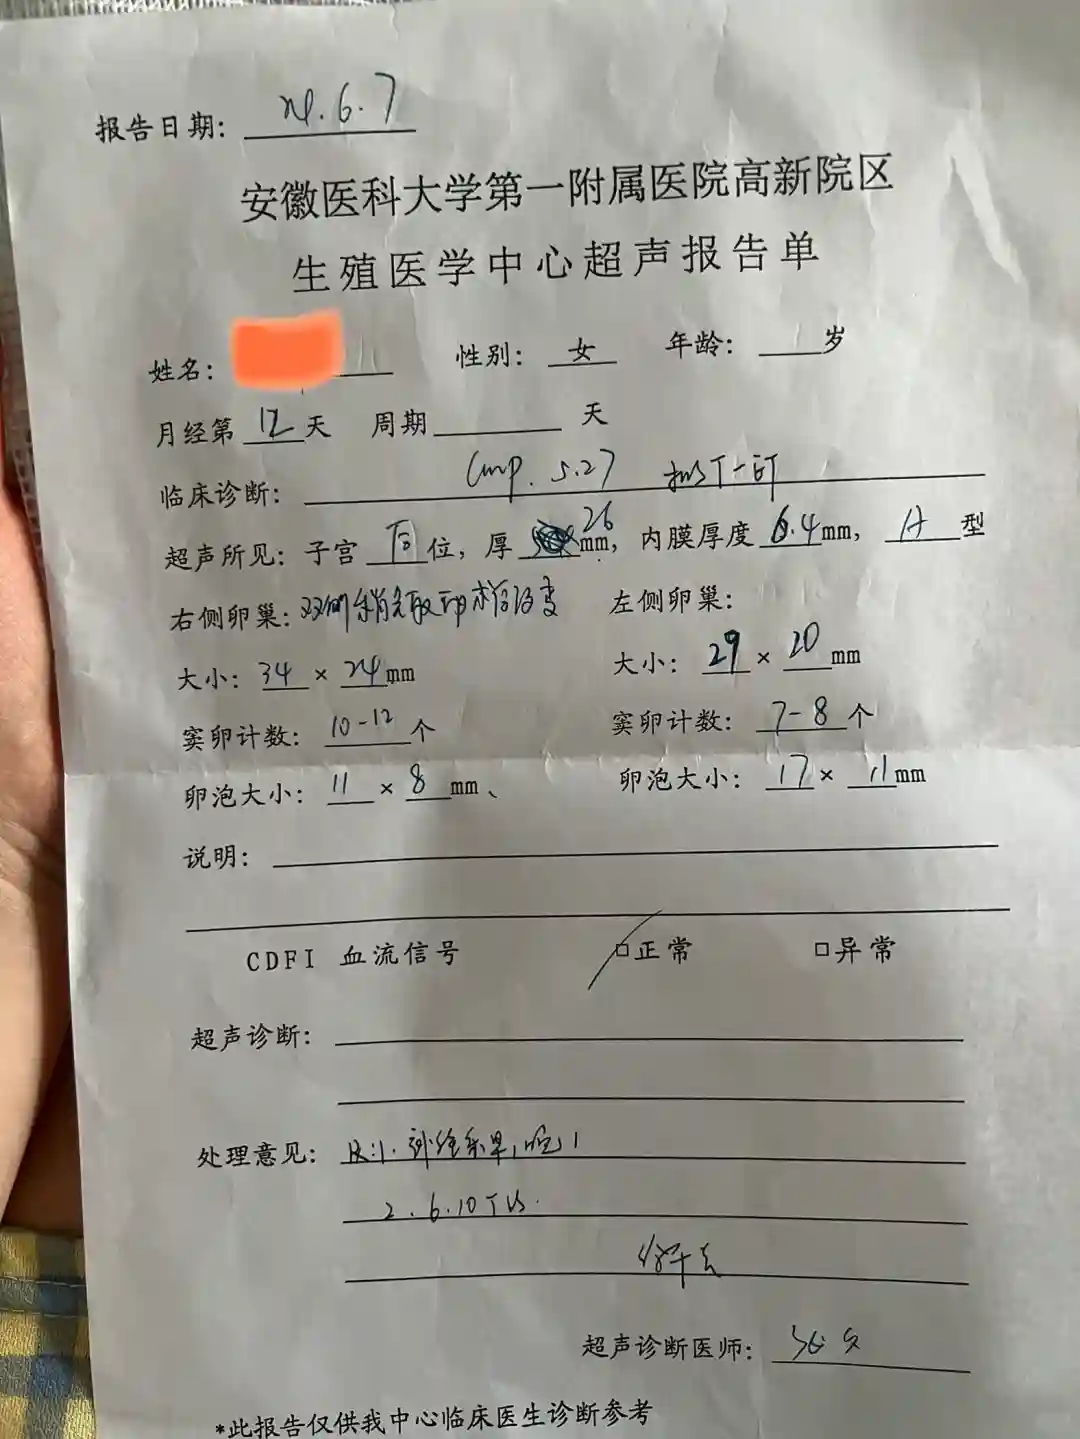 报告日期: 24.6.7
安徽医科大学第一附属医院高新院区
生殖医学中心超声报告单
姓名: 性别: 女 年龄: 岁
月经第 12 天 周期 天
临床诊断: Lmp. 5.27 拟行-ET
超声所见: 子宫 后 位, 厚 26 mm, 内膜厚度 6.4 mm, A 型
右侧卵巢: 双侧稍多取卵术后改变 左侧卵巢:
大小: 34 × 24 mm 大小: 29 × 20 mm
窦卵计数: 10-12 个 窦卵计数: 7-8 个
卵泡大小: 11 × 8 mm、 卵泡大小: 17 × 11 mm
说明:
CDFI 血流信号 □正常 □异常
超声诊断:
处理意见: R:1.
2. 6.10 TVS.
超声诊断医师:
*此报告仅供我中心临床医生诊断参考